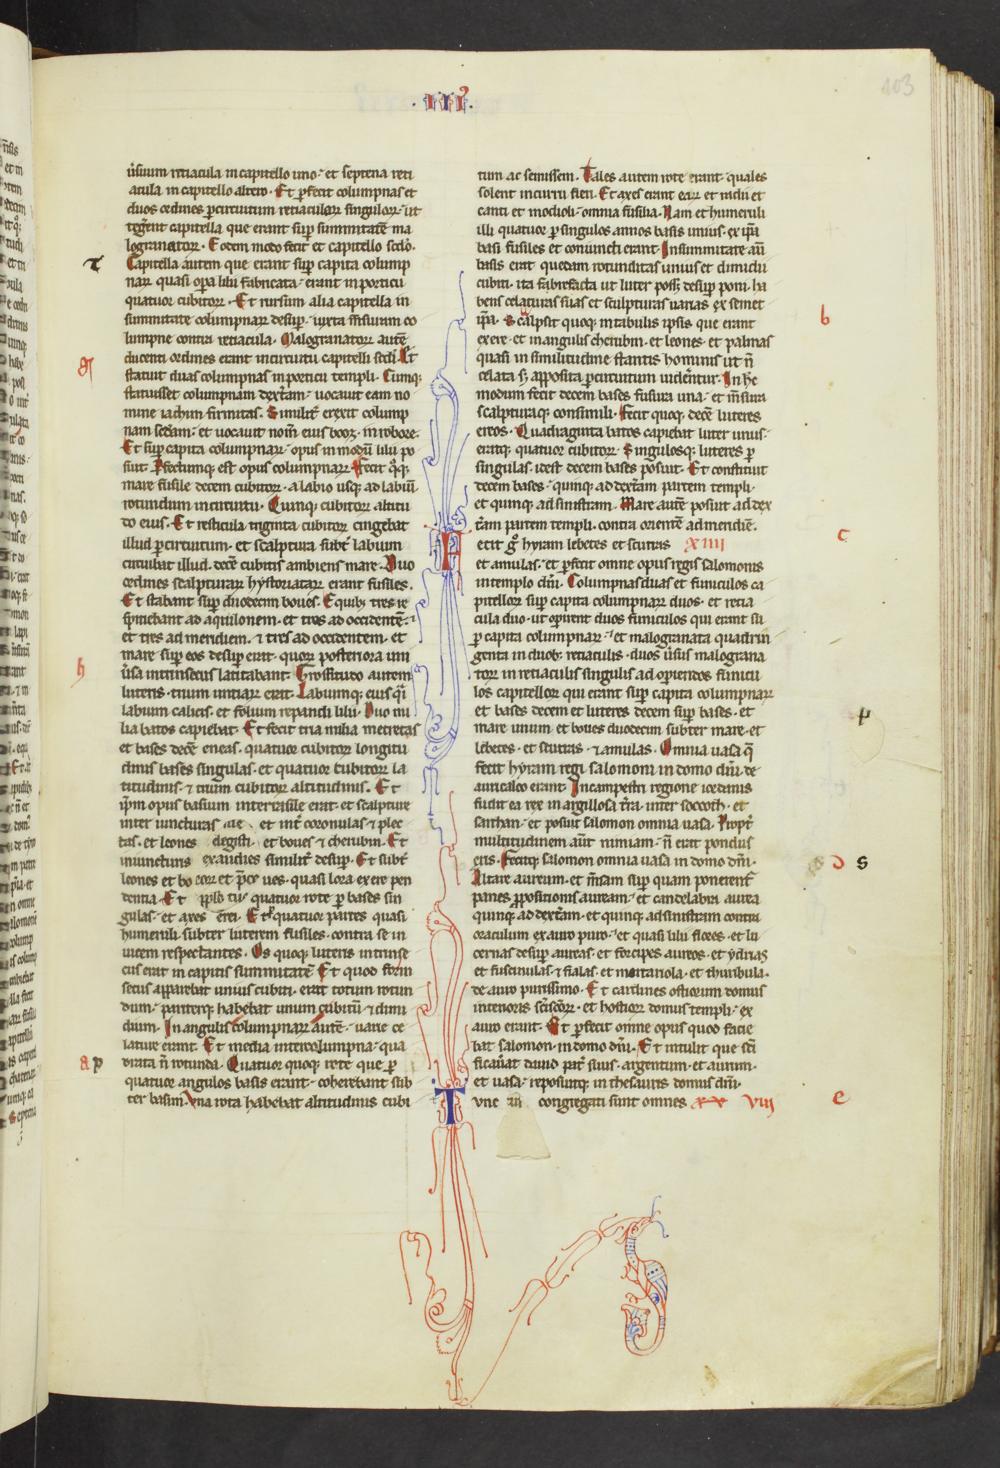 ·III·
103
uersuum retiacula in capitello uno· et septena reti
acula in capitello altero· Et perfecit columpnas et
duos ordines per circuitum retiaculorum singulorum· ut
tegerent capitella que erant super summitatem ma
logranatorum· Eodem modo fecit et capitello secundo·
Capitella autem que erant super capita colump
narum quasi opera lilii fabricata· erant in porticu
quatuor cubitorum· Et rursum alia capitella in
summitate columpnarum desuper· iuxta mensuram co
lumpne contra retiacula· Malogranatorum autem
ducenti ordines erant in circuitu capitelli secundi· Et
statuit duas columpnas in porticu templi· Cumque
statuisset columpnam dextram· uocauit eam no
mine iachin firmitas· Similiter erexit colump
nam secundam· et uocauit nomen eius booz· in robore·
Et super capita columpnarum· opus in modum lilii po
suit· Perfectumque est opus columpnarum· Fecit quoque
mare fusile decem cubitorum· a labio usque ad labium
rotundum in circuitu· Quinque cubitorum altitu
do eius· Et resticula triginta cubitorum cingebat
illud per circuitum· et scalptura subter labium
circuibat illud· decem cubitis ambiens mare· Duo
ordines scalpturarum hystoriatarum erant fusiles·
Et stabant super duodecim boues· E quibus tres re
spiciebant ad aquilonem· et tres ad occidentem·
et tres ad meridiem· et tres ad occidentem· et
mare super eos desuper erat· quorum posteriora uni
uersa intrinsecus latitabant· Grossitudo autem
luteris· trium unciarum erat· Labiumque eius quasi
labium calicis· et folium repandi lilii· Duo mi
lia batos capiebat· Et fecit tria milia metretas
et bases decem eneas· quatuor cubitorum longitu
dinis bases singulas· et quatuor cubitorum la
titudinis· et trium cubitorum altitudinis· Et
ipsum opus basium interrasile erat· et scalpture
inter iuncturas et inter coronulas et plec
tas· et leones et boues et cherubin· Et
in iuncturis similiter desuper· Et subter
leones et bo ues· quasi lora ex ere pen
dentia· Et quatuor rote per bases sin
gulas· et axes erei· Et quatuor partes quasi
humeruli subter luterem fusiles· contra se in
uicem respectantes· Os quoque luteris intrinse
cus erat in capitis summitate· Et quod forin
secus apparebat unius cubiti· erat totum rotun
dum· pariterque habebat unum cubitum et dimi
dium· In angulis columpnarum autem· uarie ce
lature erant· Et media intercolumpnia· qua
drata non rotunda· Quatuor quoque rote que per
quatuor angulos basis erant· coherebant sub
ter basim· Una rota habebat altitudinis cubi
tum ac semissem· Tales autem rote erant· quales
solent in curru fieri· Et axes earum et radii et
canti et modioli· omnia fusilia· Nam et humeruli
illi quatuor per singulos angulos basis unius· ex ipsa
basi fusiles et coniuncti erant· In summitate autem
basis erat quedam rotunditas unius et dimidii
cubiti· ita fabrefacta ut luter posset desuper poni· ha
bens celaturas suas et sculpturas uarias ex semet
ipsa· Scalpsit quoque in tabulis ipsis que erant
ex ere· et in angulis cherubin· et leones· et palmas
quasi in similitudine stantis hominis ut non
celata sed apposita per circuitum uiderentur· In hunc
modum fecit decem bases fusura una· et mensura
scalpturaque consimili· Fecit quoque decem luteres
ereos· Quadraginta batos capiebat luter unus·
eratque quatuor cubitorum· Singulosque luteres per
singulas· idest decem bases posuit· Et constituit
decem bases· quinque ad dextram partem templi·
et quinque ad sinistram· Mare autem posuit ad dex
tram partem templi· contra orientem ad meridiem·
Fecit ergo hyram lebetes et scutras XIIII
et amulas· et perfecit omne opus regis salomonis
in templo domini· Columpnas duas et funiculos ca
pitellorum super capita columpnarum duos· et retia
cula duo· ut operirent duos funiculos qui erant su
per capita columpnarum· et malogranata quadrin
genta in duobus retiaculis· duos uersus malograna
torum in retiaculis singulis ad operiendos funicu
los capitellorum qui erant super capita columpnarum
et bases decem et luteres decem super bases· et
mare unum et boues duodecim subter mare· et
lebetes· et scutras· et amulas· Omnia uasa que
fecit hyram regi salomoni in domo domini· de
auricalco erant· In campestri regione iordanis
fudit ea rex in argillosa terra· inter soccoth· et
sarthan· et posuit salomon omnia uasa· Propter
multitudinem autem nimiam· non erat pondus
eris· Fecitque salomon omnia uasa in domo domini·
Altare aureum· et mensam super quam ponerentur
panes propositionis auream· et candelabra aurea
quinque ad dextram· et quinque ad sinistram contra
oraculum ex auro puro· et quasi lilii flores· et lu
cernas desuper aureas· et forcipes aureos· et ydrias
et fuscinulas et fialas· et mortariola· et thuribula·
de auro purissimo· Et cardines ostiorum domus
interioris sancti sanctorum· et hostiorum domus templi· ex
auro erant· Et perfecit omne opus quod facie
bat salomon· in domo domini· Et intulit que sancti
ficauerat dauid pater suus· argentum· et aurum·
et uasa· reposuitque in thesauris domus domini·
Tunc congregati sunt omnes VIII
b
c
d s
e
h
a p